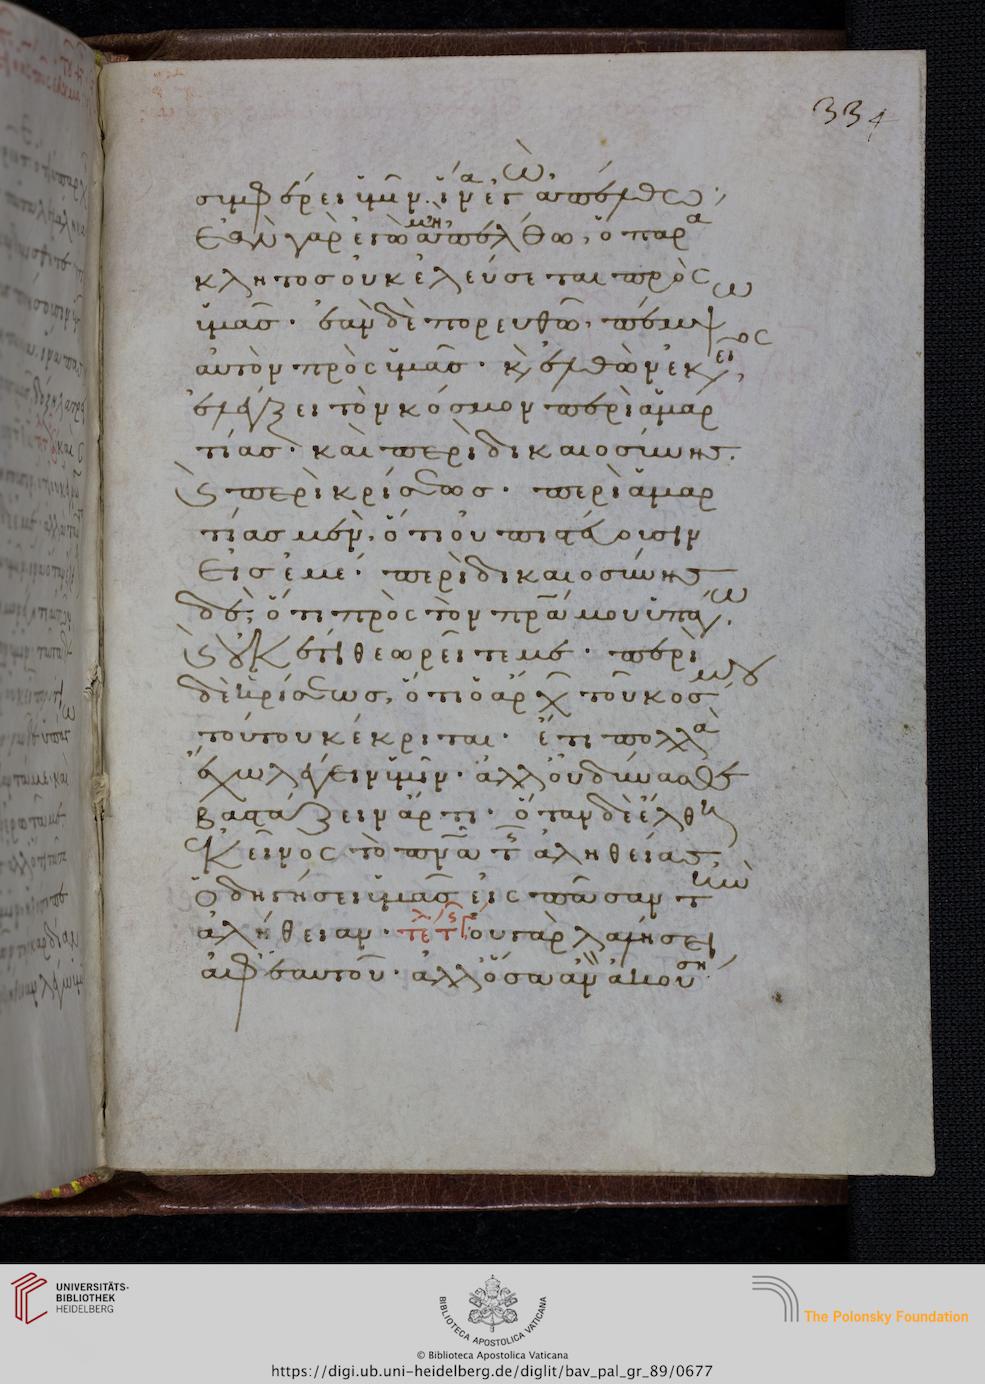 334
συμφέρει ὑμῖν ἵνα ἐγὼ ἀπέλθω·
Ἐὰν γὰρ ἐγὼ μὴ ἀπέλθω, ὁ παρά
κλητος οὐκ ἐλεύσεται πρὸς
ὑμᾶς· ἐὰν δὲ πορευθῶ, πέμψω
αὐτὸν πρὸς ὑμᾶς· κ ἐλθὼν ἐκεῖνος,
ἐλέγξει τὸν κόσμον περὶ ἁμαρ
τίας· καὶ περὶ δικαιοσύνης·
κ περὶ κρίσεως· περὶ ἁμαρ
τίας μὲν, ὅτι οὐ πιστεύουσιν
Εἰς ἐμέ· περὶ δικαιοσύνης
δὲ, ὅτι πρὸς τὸν πρα μου ὑπάγω,
κ οὐκ ἔτι θεωρεῖτέ με· περὶ
δὲ κρίσεως, ὅτι ὁ ἄρχ τοῦ κόσμου
τούτου κέκριται· ἔτι πολλὰ
ἔχω λέγειν ὑμῖν· ἀλλ οὐ δύνασθε
βαστάζειν ἄρτι· ὅταν δὲ ἔλθῃ
ἐκεῖνος τὸ πνα τῆς ἀληθείας
Ὁδηγήσει ὑμᾶς εἰς πᾶσαν τὴν
ἀλήθειαν· οὐ γὰρ λαλήσει
ἀφ ἑαυτοῦ· ἀλλ ὅσα ἂν ἀκούσῃ
UNIVERSITÄTS-
BIBLIOTHEK
HEIDELBERG
BIBLIOTECA APOSTOLICA VATICANA
The Polonsky Foundation
© Biblioteca Apostolica Vaticana
https://digi.ub.uni-heidelberg.de/diglit/bav_pal_gr_89/0677